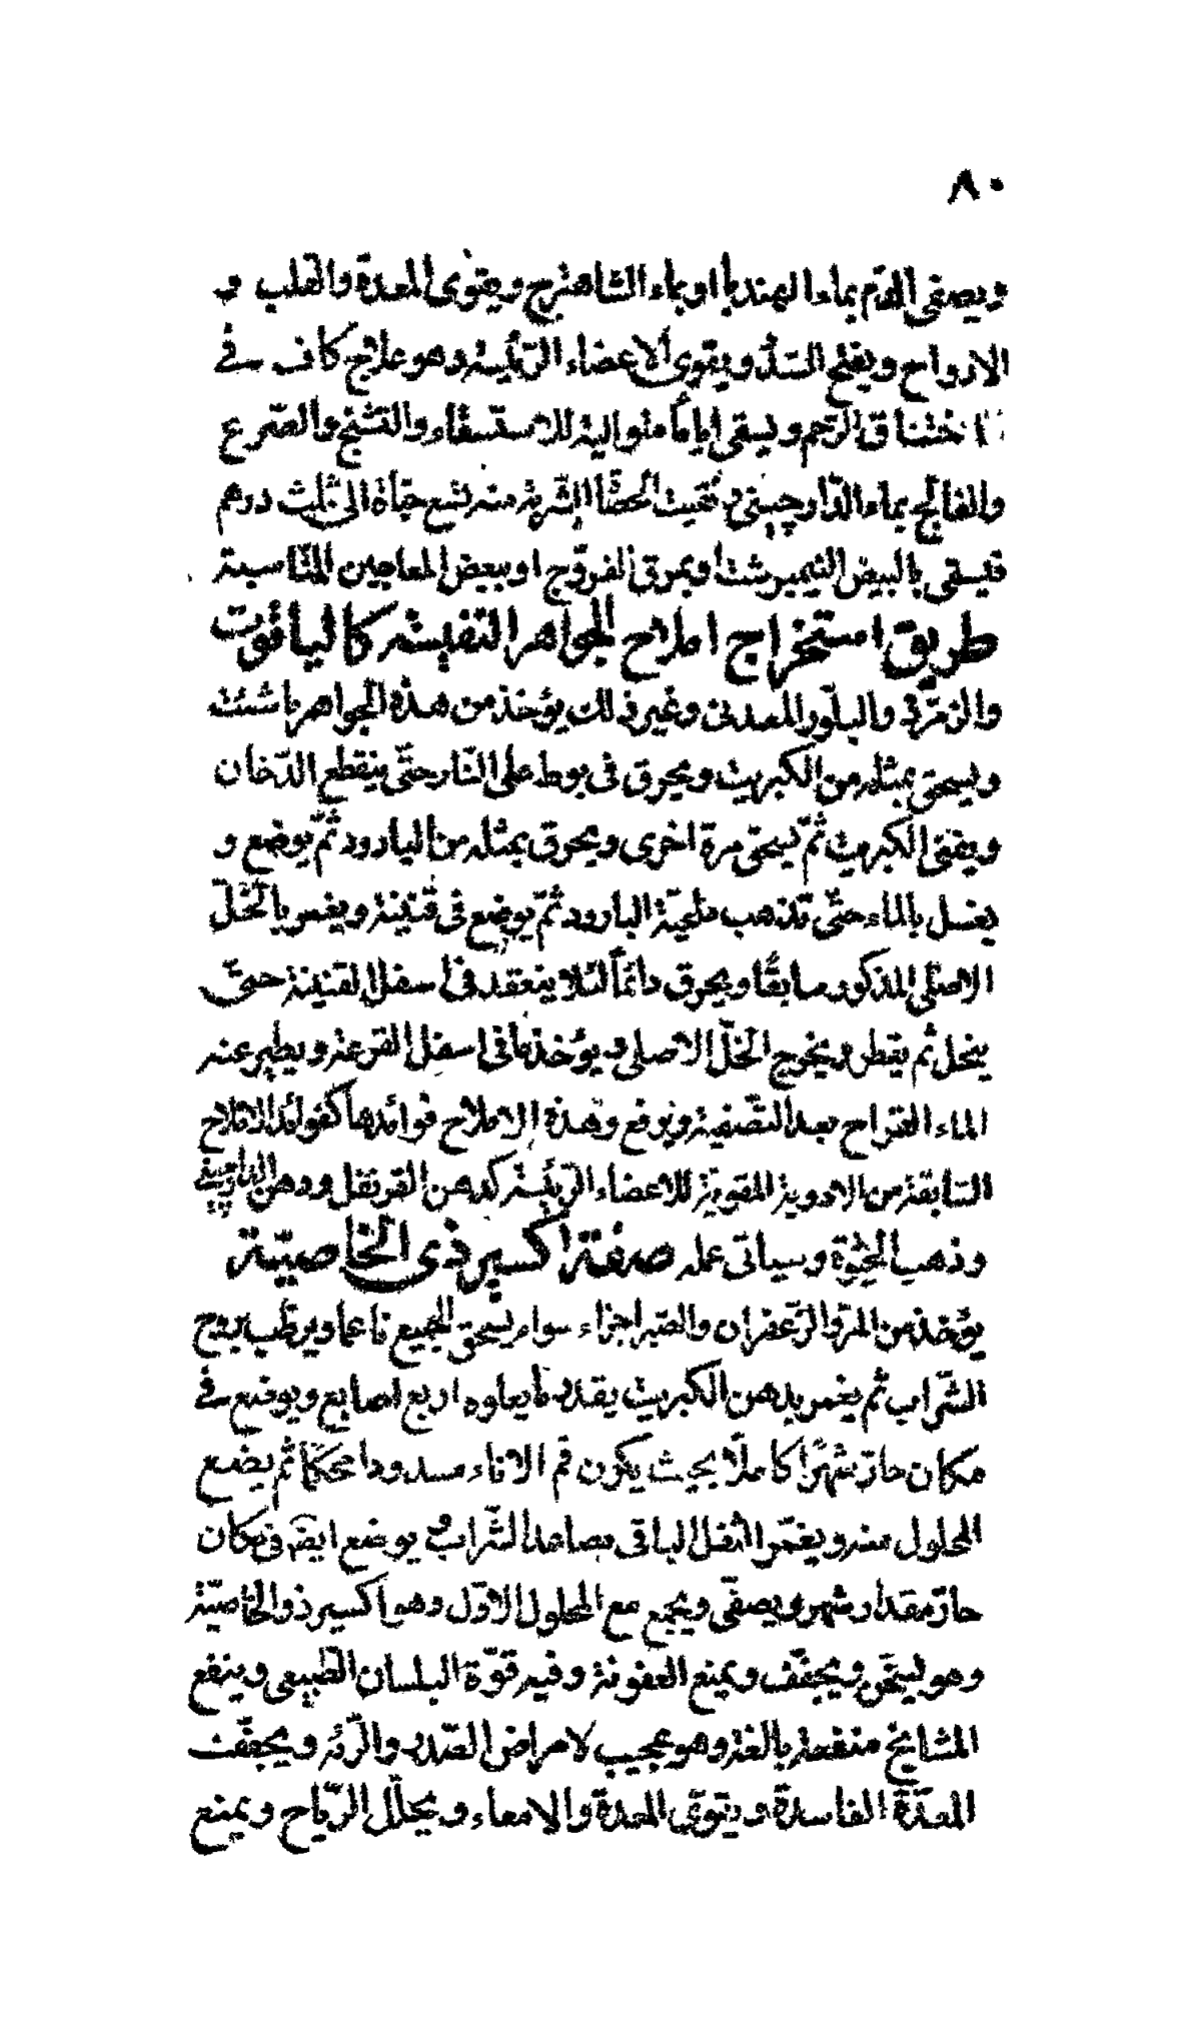 ٨٠
ويصفى الدّم بماء الهندبا او بماء الشاهترج ويقوى المعدة والقلب و
الارواح ويفتح السّدد ويقوى الاعضاء الرّئيسة وهو علاج كاف فى
اختناق الرّحم ويسقى اياماً متوالية للاستسقاء والتشنج والصّرع
والفالج بماء الدّارچينى وتفتيت الحصاة الشّربة منه تسع حبّات الى ثلث درهم
فيسقى بالبيض النيمبرشت او بمرق الفروّج او ببعض المعاجين المناسبة
طريق استخراج املاح الجواهر النفيسة كالياقوت
والزمرّد والبلّور المعدنى وغير ذلك يؤخذ من هذه الجواهر ما شئت
ويسحق بمثله من الكبريت ويحرق فى بوطه على النّار حتّى ينقطع الدّخان
ويفنى الكبريت ثمّ يسحق مرة اخرى ويحرق بمثله من البارود ثمّ يوضع و
يغسل بالماء حتّى تذهب ملحيّة البارود ثمّ يوضع فى قنينة ويغمر بالخلّ
الاصلى المذكور سابقًا ويحرق دائماً لئلا ينعقد فى اسفل القنينة حتّى
ينحل ثم يقطر ويخرج الخلّ الاصلى ويؤخذ ما فى اسفل القرعة ويطير عنه
الماء القراح بعد التّصفية ويرفع وهذه الاملاح فوائدها كفوائد الاملاح
السّابقة من الادوية المقوية للاعضاء الرّئيسة كدهن القرنفل ودهن الدارچينى
وذهب الحيٰوة وسياتى عمله صفة اكسير ذى الخاصيّة
يؤخذ من المرّ والزّعفران والصّبر اجزاء سواء يسحق الجميع ناعما ويرطّب بروح
الشّراب ثم يغمر بدهن الكبريت بقدر ما يعلوه اربع اصابع ويوضع فى
مكان حارّ شهرًا كاملاً بحيث يكون فم الاناء مسدودا محكمًا ثم يضع
المحلول منه ويغمّر الثفل الباقى بصاعد الشّراب و يوضع ايضًا فى مكان
حارّ مقدار شهر ويصفّى ويجمع مع المحلول الاوّل وهو اكسير ذو الخاصيّة
وهو يسخّن ويجفّف ويمنع العفونة وفيه قوّة البلسان الطّبيعى وينفع
المشايخ منفعة بالغة وهو عجيب لامراض الصّدر والرّئة ويجفّف
المعدّة الفاسدة ويقوّى المعدة والامعاء ويحلّل الرّياح ويمنع